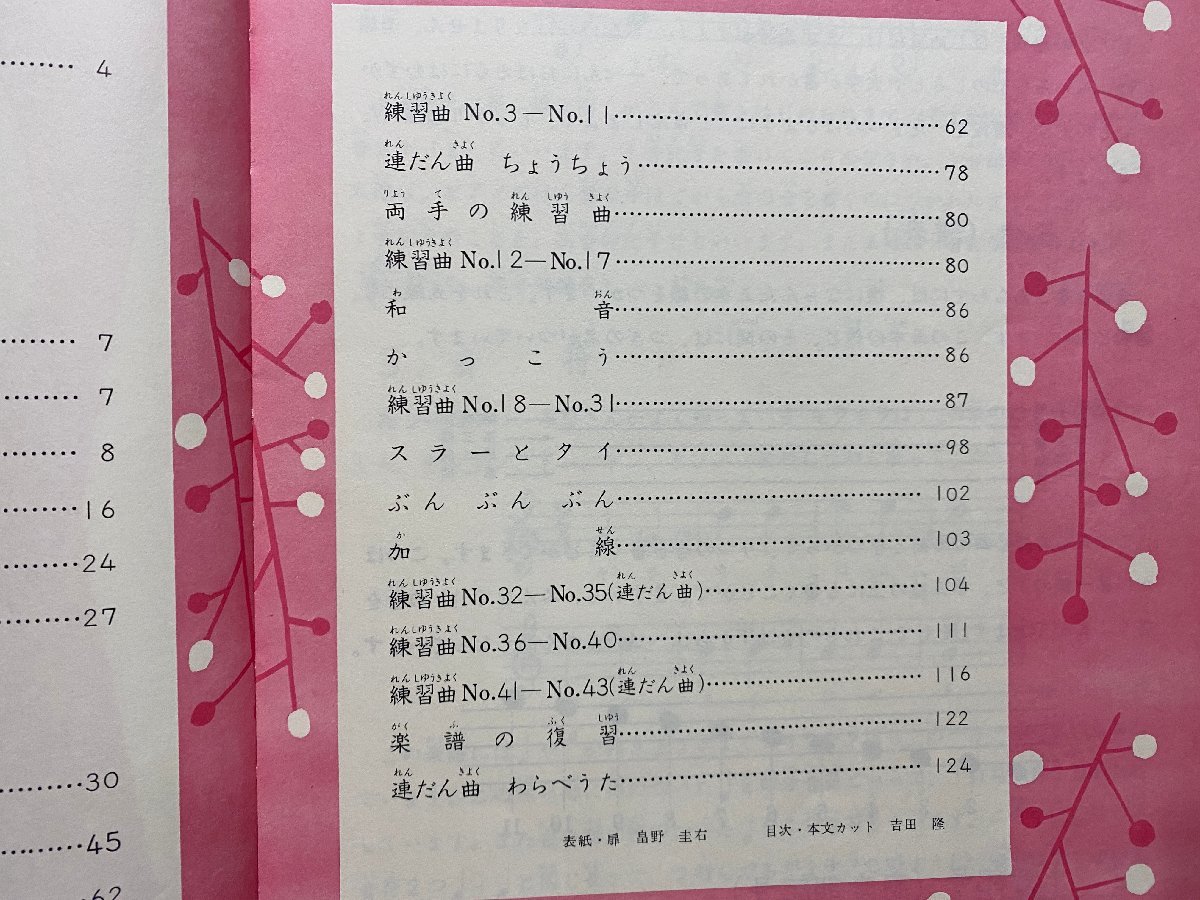 4
7
7
8
16
24
27
30
45
62
練習曲 No.3―No.11 62
連だん曲 ちょうちょう 78
両手の練習曲 80
練習曲 No.12―No.17 80
和音 86
かっこう 86
練習曲 No.18―No.31 87
スラーとタイ 98
ぶん ぶん ぶん 102
加線 103
練習曲 No.32―No.35(連だん曲) 104
練習曲 No.36―No.40 111
練習曲 No.41―No.43(連だん曲) 116
楽譜の復習 122
連だん曲 わらべうた 124
表紙・扉 畠野 圭右 目次・本文カット 吉田 隆